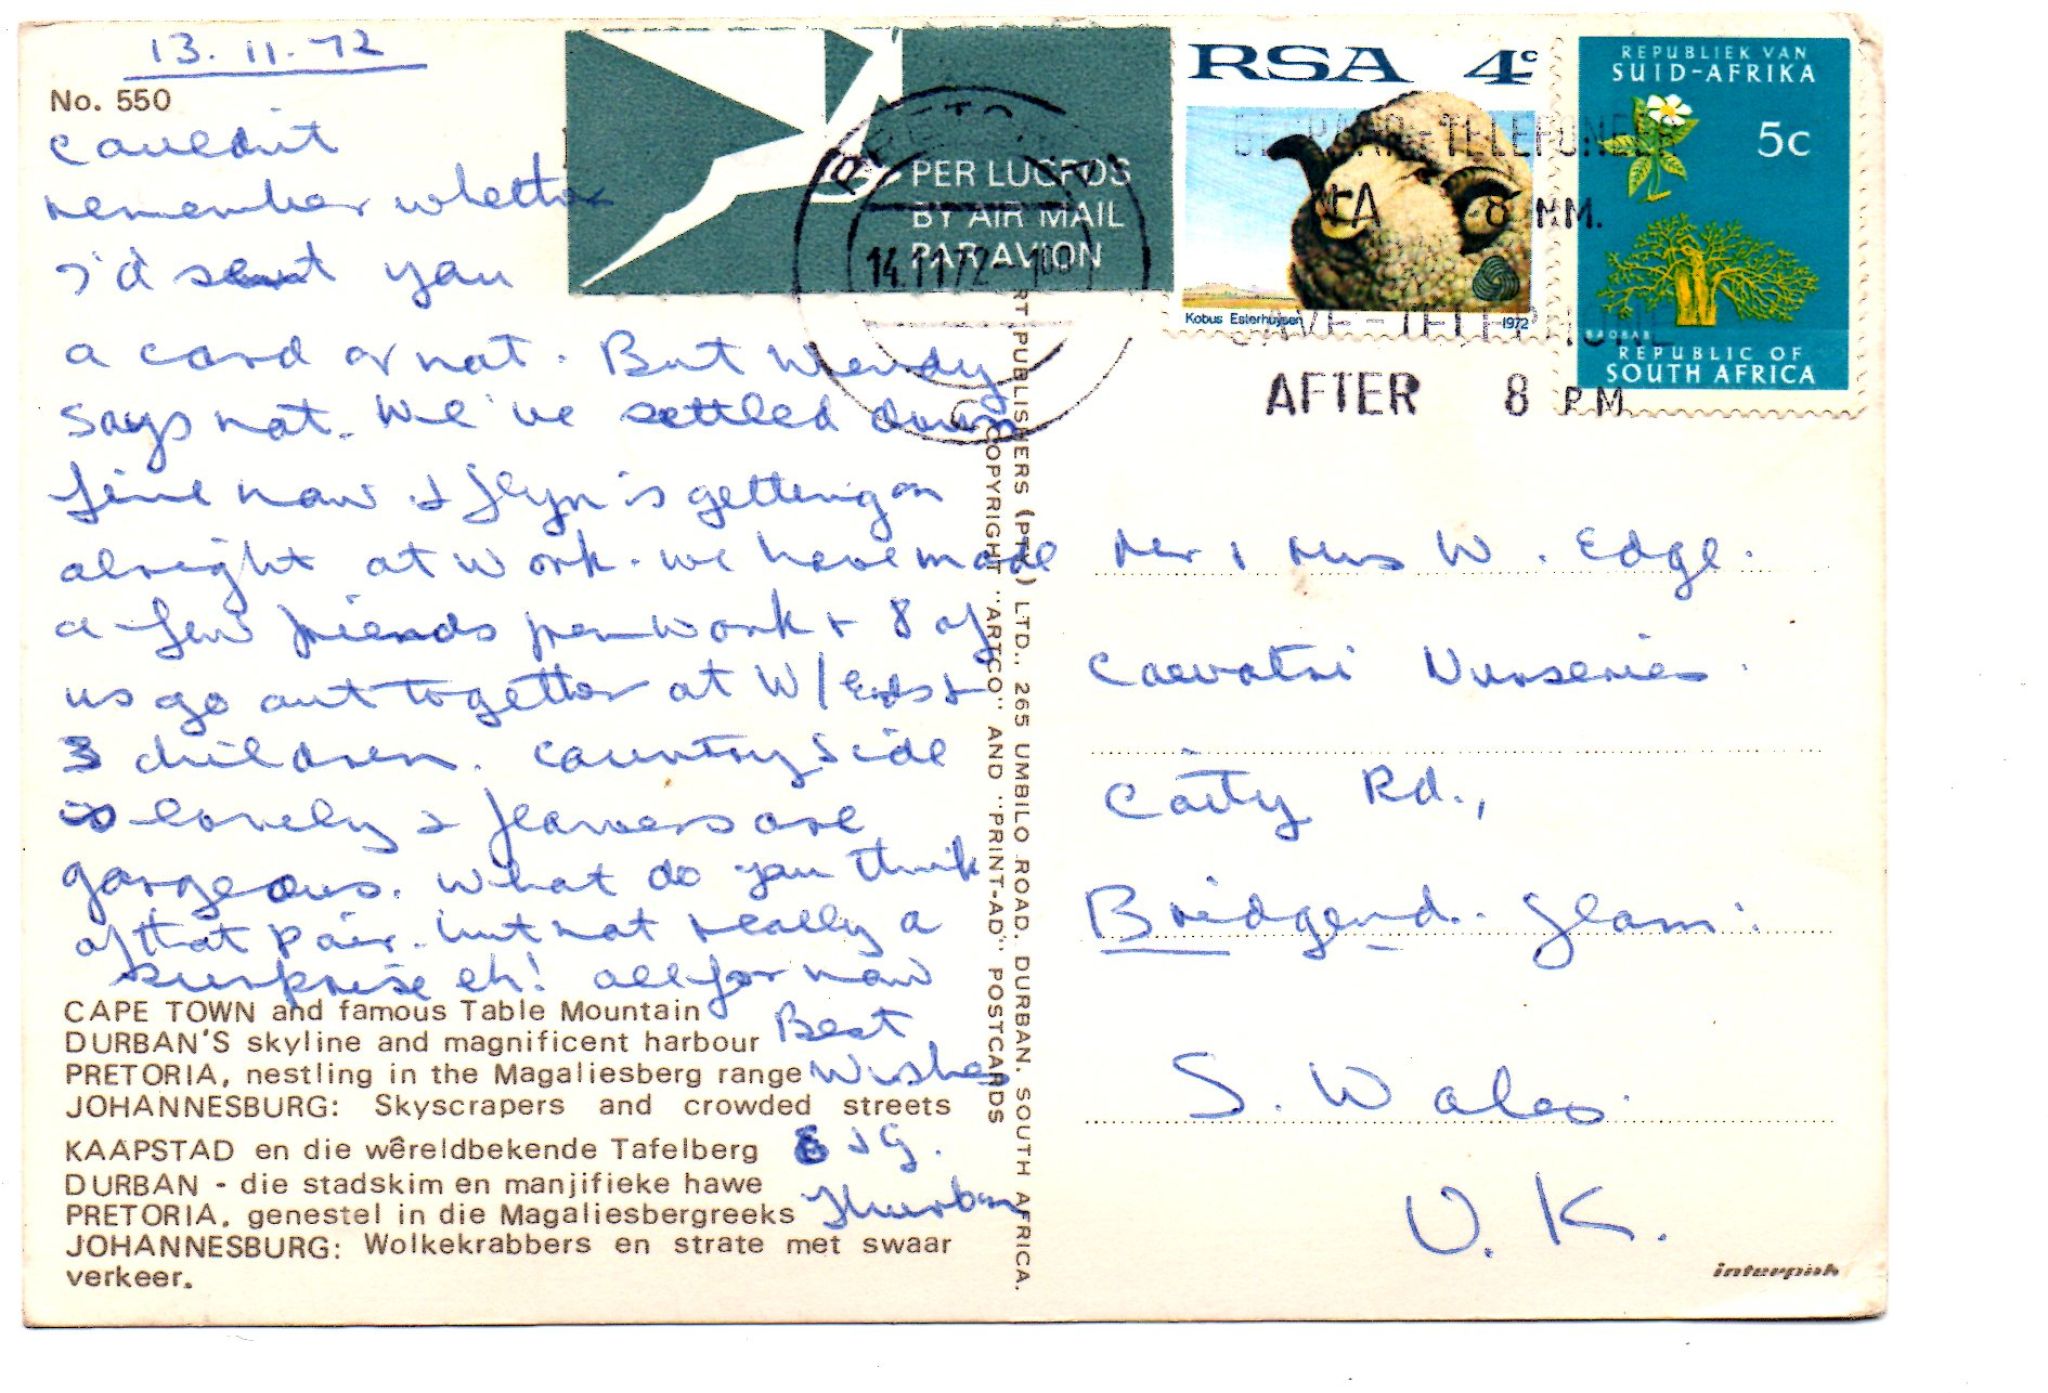 13. 11. 72
No. 550
Couldn't
remember whether
I'd sent you
a card or not. But Wendy
says not. We've settled down
fine now & Glyn is getting on
alright at work. We have made
a few friends from work & 8 of
us go out together at W/Ends &
3 children. Countryside
is lovely & flowers are
gorgeous. What do you think
of that pair. but not really a
surprise eh! all for now
Best
Wishes
& G.
CAPE TOWN and famous Table Mountain
DURBAN'S skyline and magnificent harbour
PRETORIA, nestling in the Magaliesberg range
JOHANNESBURG: Skyscrapers and crowded streets
KAAPSTAD en die wêreldbekende Tafelberg
DURBAN - die stadskim en manjifieke hawe
PRETORIA, genestel in die Magaliesbergreeks
JOHANNESBURG: Wolkekrabbers en strate met swaar
verkeer.
PUBLISHERS (PTY.) LTD., 265 UMBILO ROAD, DURBAN, SOUTH AFRICA.
COPYRIGHT "ARTCO" AND "PRINT-AD" POSTCARDS
PER LUGPOS
BY AIR MAIL
PAR AVION
PRETORIA
14.11.72
RSA 4c
Kobus Esterhuysen 1972
REPUBLIEK VAN
SUID-AFRIKA
5c
BAOBAB
REPUBLIC OF
SOUTH AFRICA
TELEFONEER
NA 8 NM.
SAVE-TELEPHONE
AFTER 8 PM
Mr & Mrs W. Edge.
Nurseries.
Coity Rd.,
Bridgend. Glam:
S. Wales.
U. K.
interpish